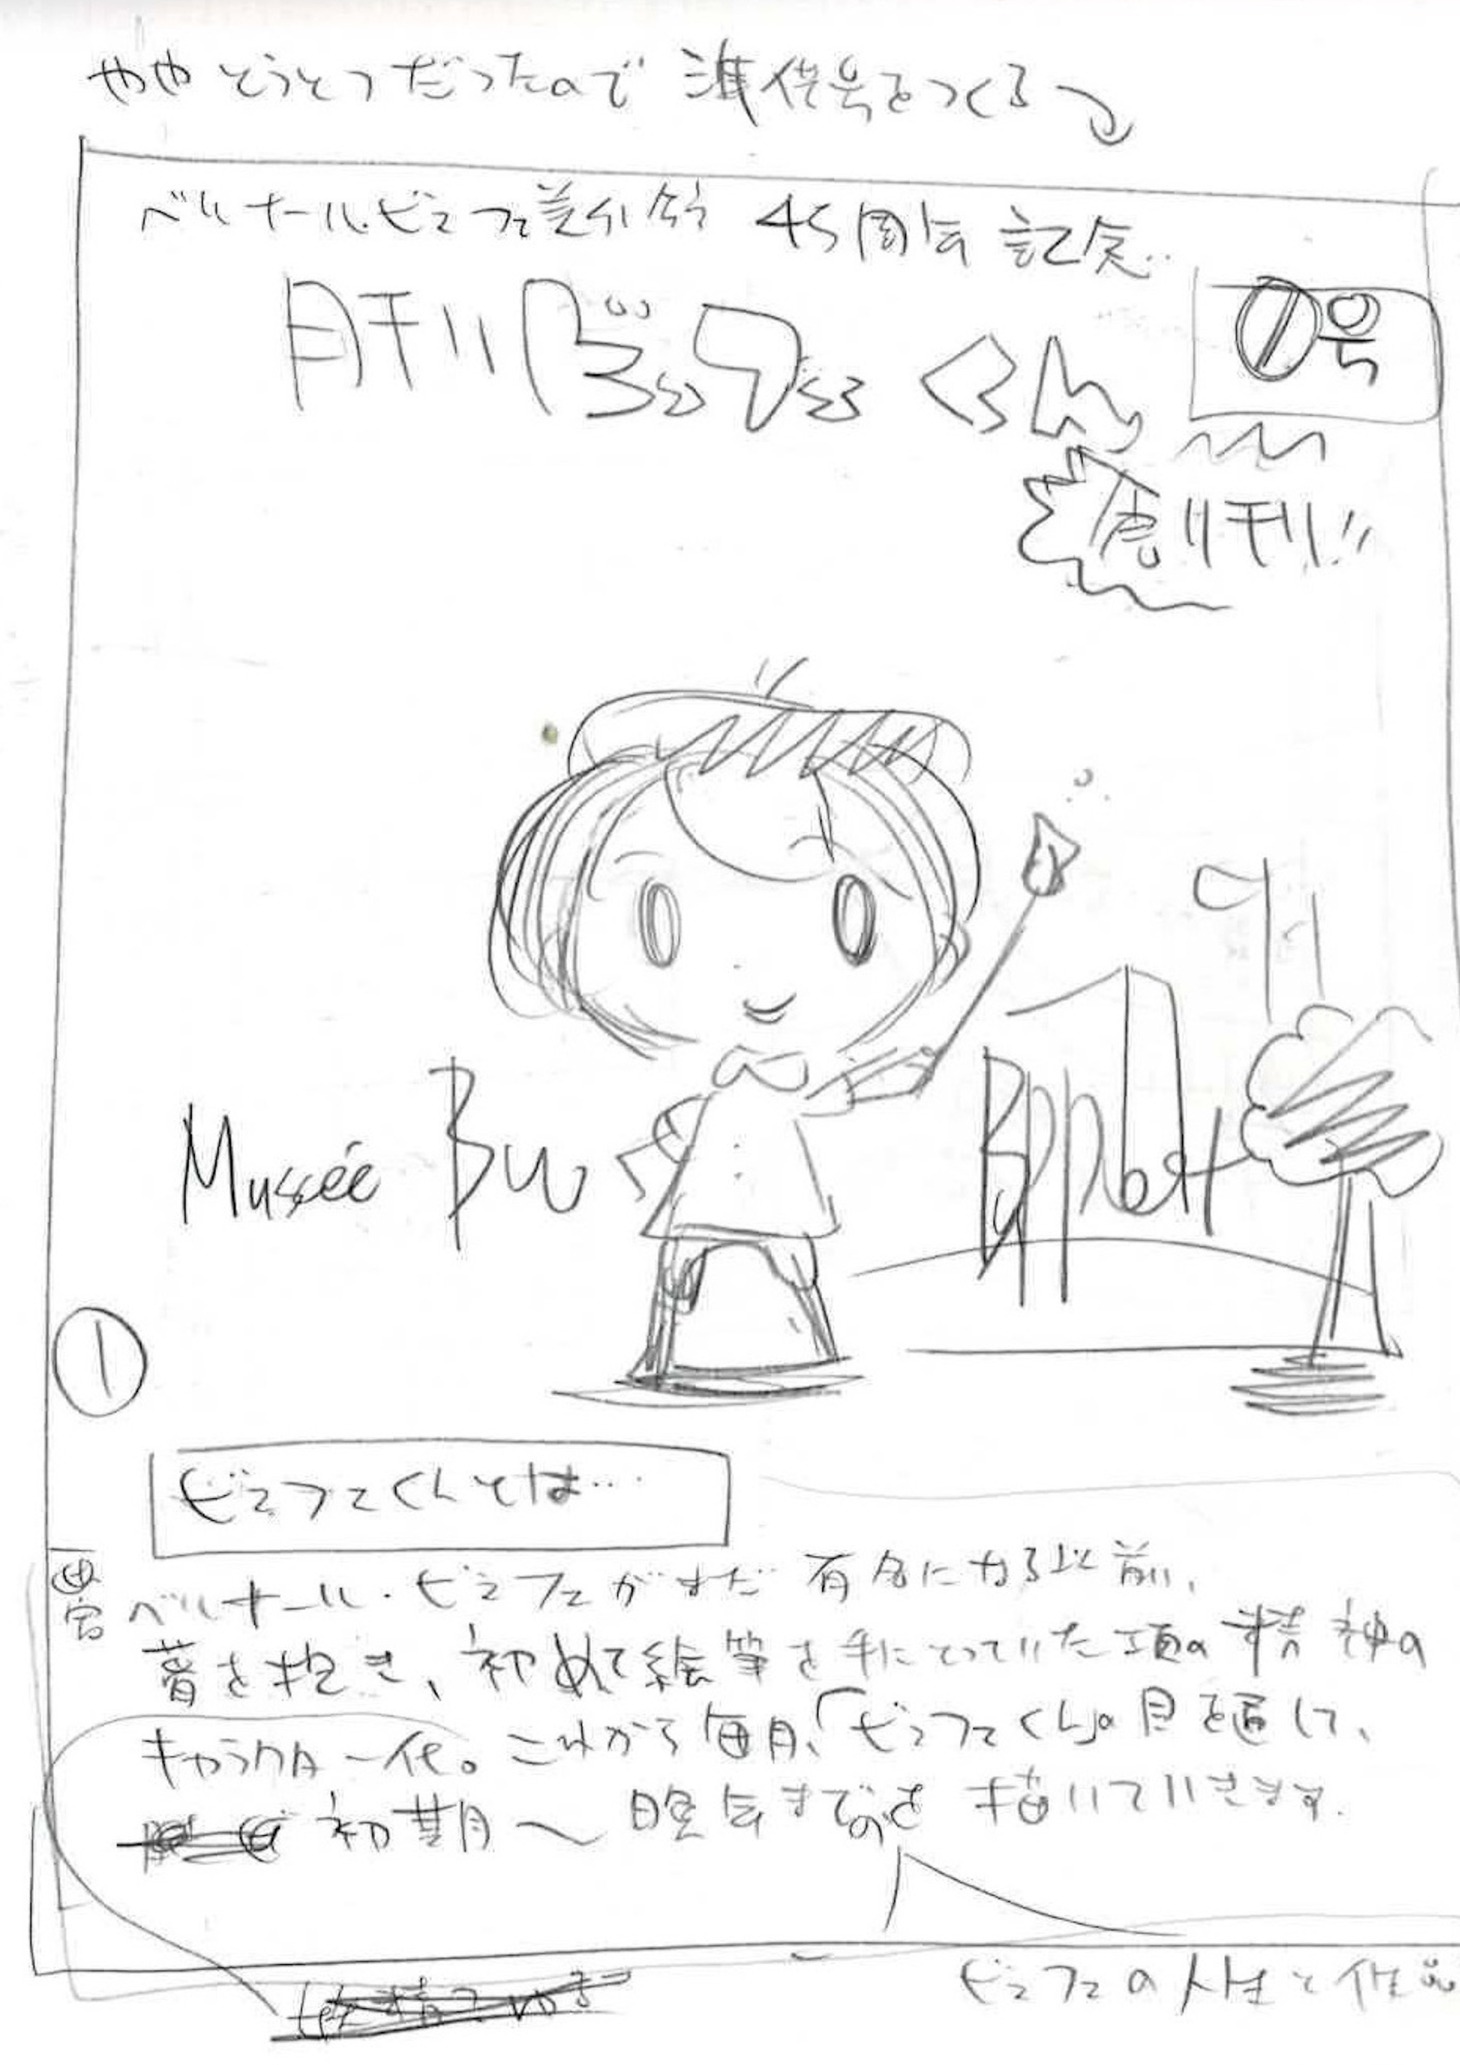 ややとうとつだったので 準備号をつくる
ベルナール・ビュフェ美術館 45周年 記念
月刊ビュフェくん
0号
創刊!!
Musée Bu
Buffet
1
ビュフェくんとは…
ベルナール・ビュフェがまだ 有名になる以前、
蕾を抱き、初めて絵筆を手にとっていた頃の精神の
キャラクター化。これから毎月、「ビュフェくん」の目を通して、
初期〜晩年までのを 描いていきます。
ビュフェの人生と作品